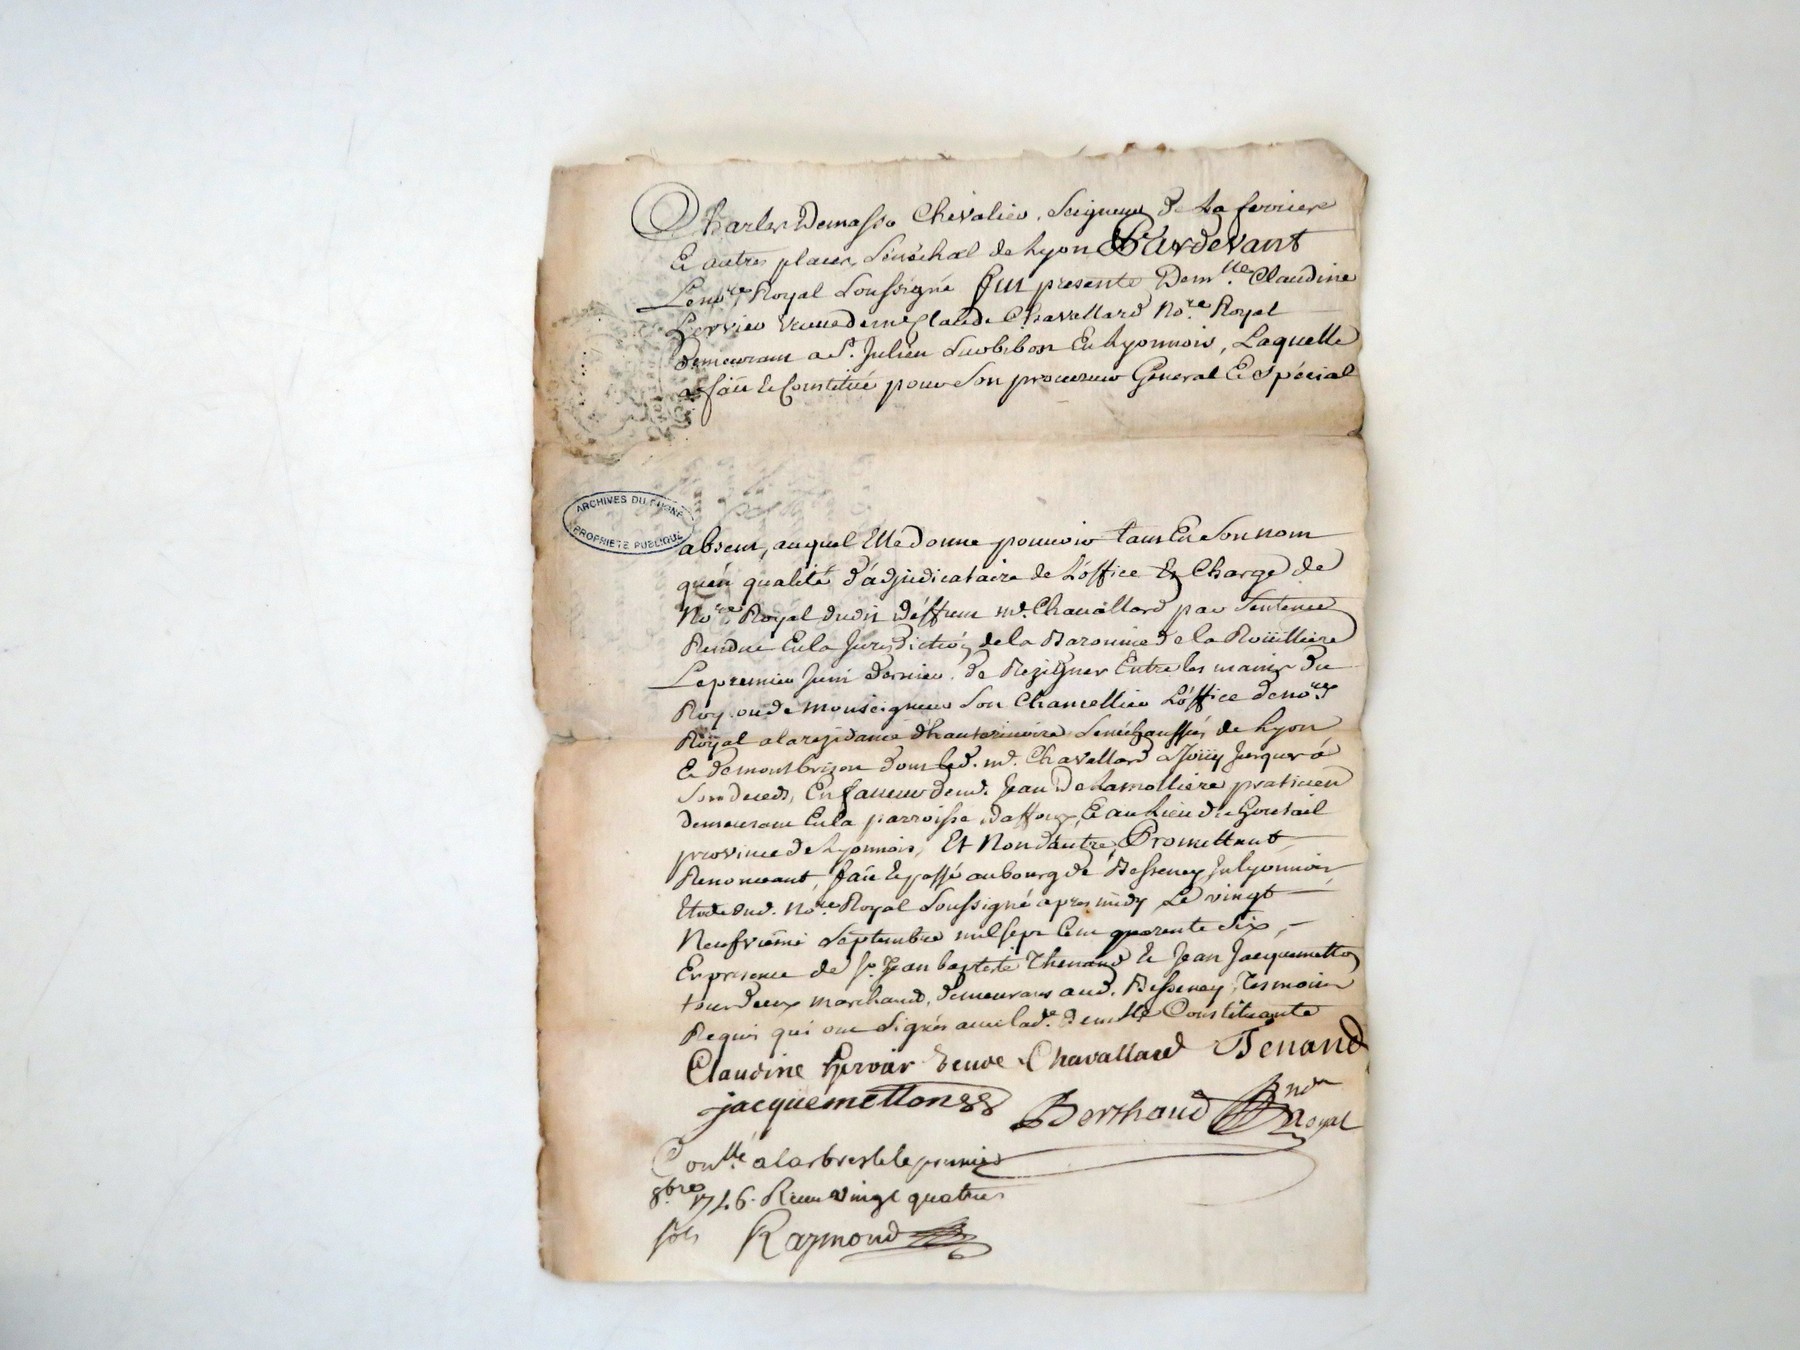 Charles Demasso Chevalier, Seigneur de La ferriere
Et autres places, Sénéchal de Lyon Pardevant
Le no.re Royal Soussigné fut presente Dem.lle Claudine
Hervier veuve de me Claude Chavallard No.re Royal
demeurant a St. Julien Sur bibost En Lyonnois, Laquelle
a fait et Constitué pour Son procureur General Et Spécial
absent, auquel Elle donne pouvoir tant En Son nom
qu'en qualité d'adjudicataire de L'office Et Charge de
No.re Royal dudit déffunt me. Chavallard par Sentence
Rendue En la Jurisdiction de la Baronnie de la Roüilliere
Le premier Juin dernier, de Rezigner Entre les mains du
Roy ou de monseigneur Son Chancellier L'office de no.re
Royal a la rezidance d'hauterivoire Sénéchaussés de Lyon
Et de montbrizon dont led. me. Chavallard a Joüy Jusques a
Son deceds, En faveur de me. Jean Delamolliere praticien
demeurant En la parroisse d'affoux, Et au Lieu de Goutail
province de Lyonnois, Et Non d'autre, Promettant,
Renonceant, fait et passé au bourg de Bessenay En Lyonnois
Etude dud. No.re Royal Soussigné apres midy Le vingt
Neufvieme Septembre mil Sept Cent quarente Six,
En presence de Sr. Jean baptiste Thenand et Jean Jacquemetton
tous deux marchands, demeurants aud. Bessenay, Tesmoins
Requis qui ont Signés avec lad.e demlle Constituante
Claudine hervier veuve Chavallard Tenand
jacquemetton
Berthaud nore Royal
Con.llé a Larbresle le premier
8.bre 1746. Receu vingt quatres
sols Raymond
ARCHIVES DU RHONE
PROPRIETE PUBLIQUE